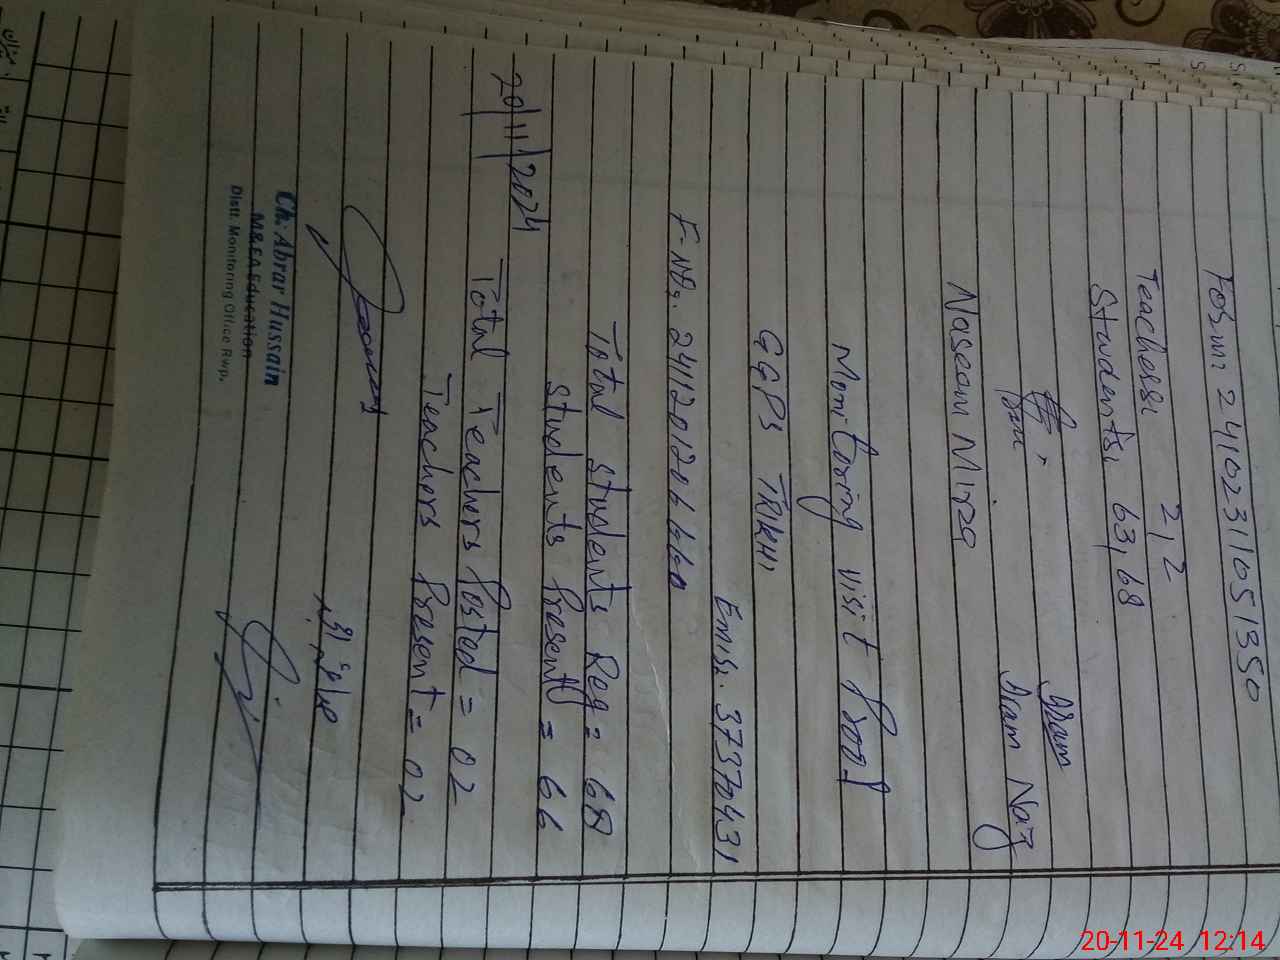 2410231051350
Teachers: 2, 2
Students: 63, 68
Iram
Iram Naz
Naseem Mirza
Monitoring visit Proof
GGPS TRKHI
Emis: 37370431
F-No:
Total Students Reg = 68
Students Present = 66
20/11/2024
Total Teachers Posted = 02
Teachers Present = 02
Ch: Abrar Hussain
M&EA Education
Distt. Monitoring Office Rwp.
20-11-24 12:14